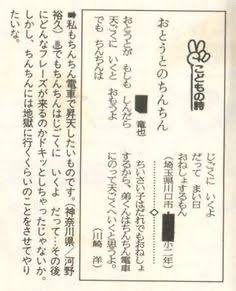 こどもの詩
おとうとのちんちん
竜也
おとうとが もしも しんだら
天ごくに いくと おもうよ
でも ちんちんは
じごくに いくよ
だって まい日
おねしょするもん
(埼玉県川口市・
小二年)
ちいさい子はだれでもおねしょ
するから、弟くんはちんちん電車
にのって天ごくへいくと思うよ。
(川崎 洋)
➡私もちんちん電車で昇天したいものです。(神奈川県／河野
裕久)
でもちんちんはじごくに いくよ だって…その後
にどんなフレーズが来るのかドキッとしちゃったじゃないか。
しかし、ちんちんには地獄に行くくらいのことをさせてやり
たいな。